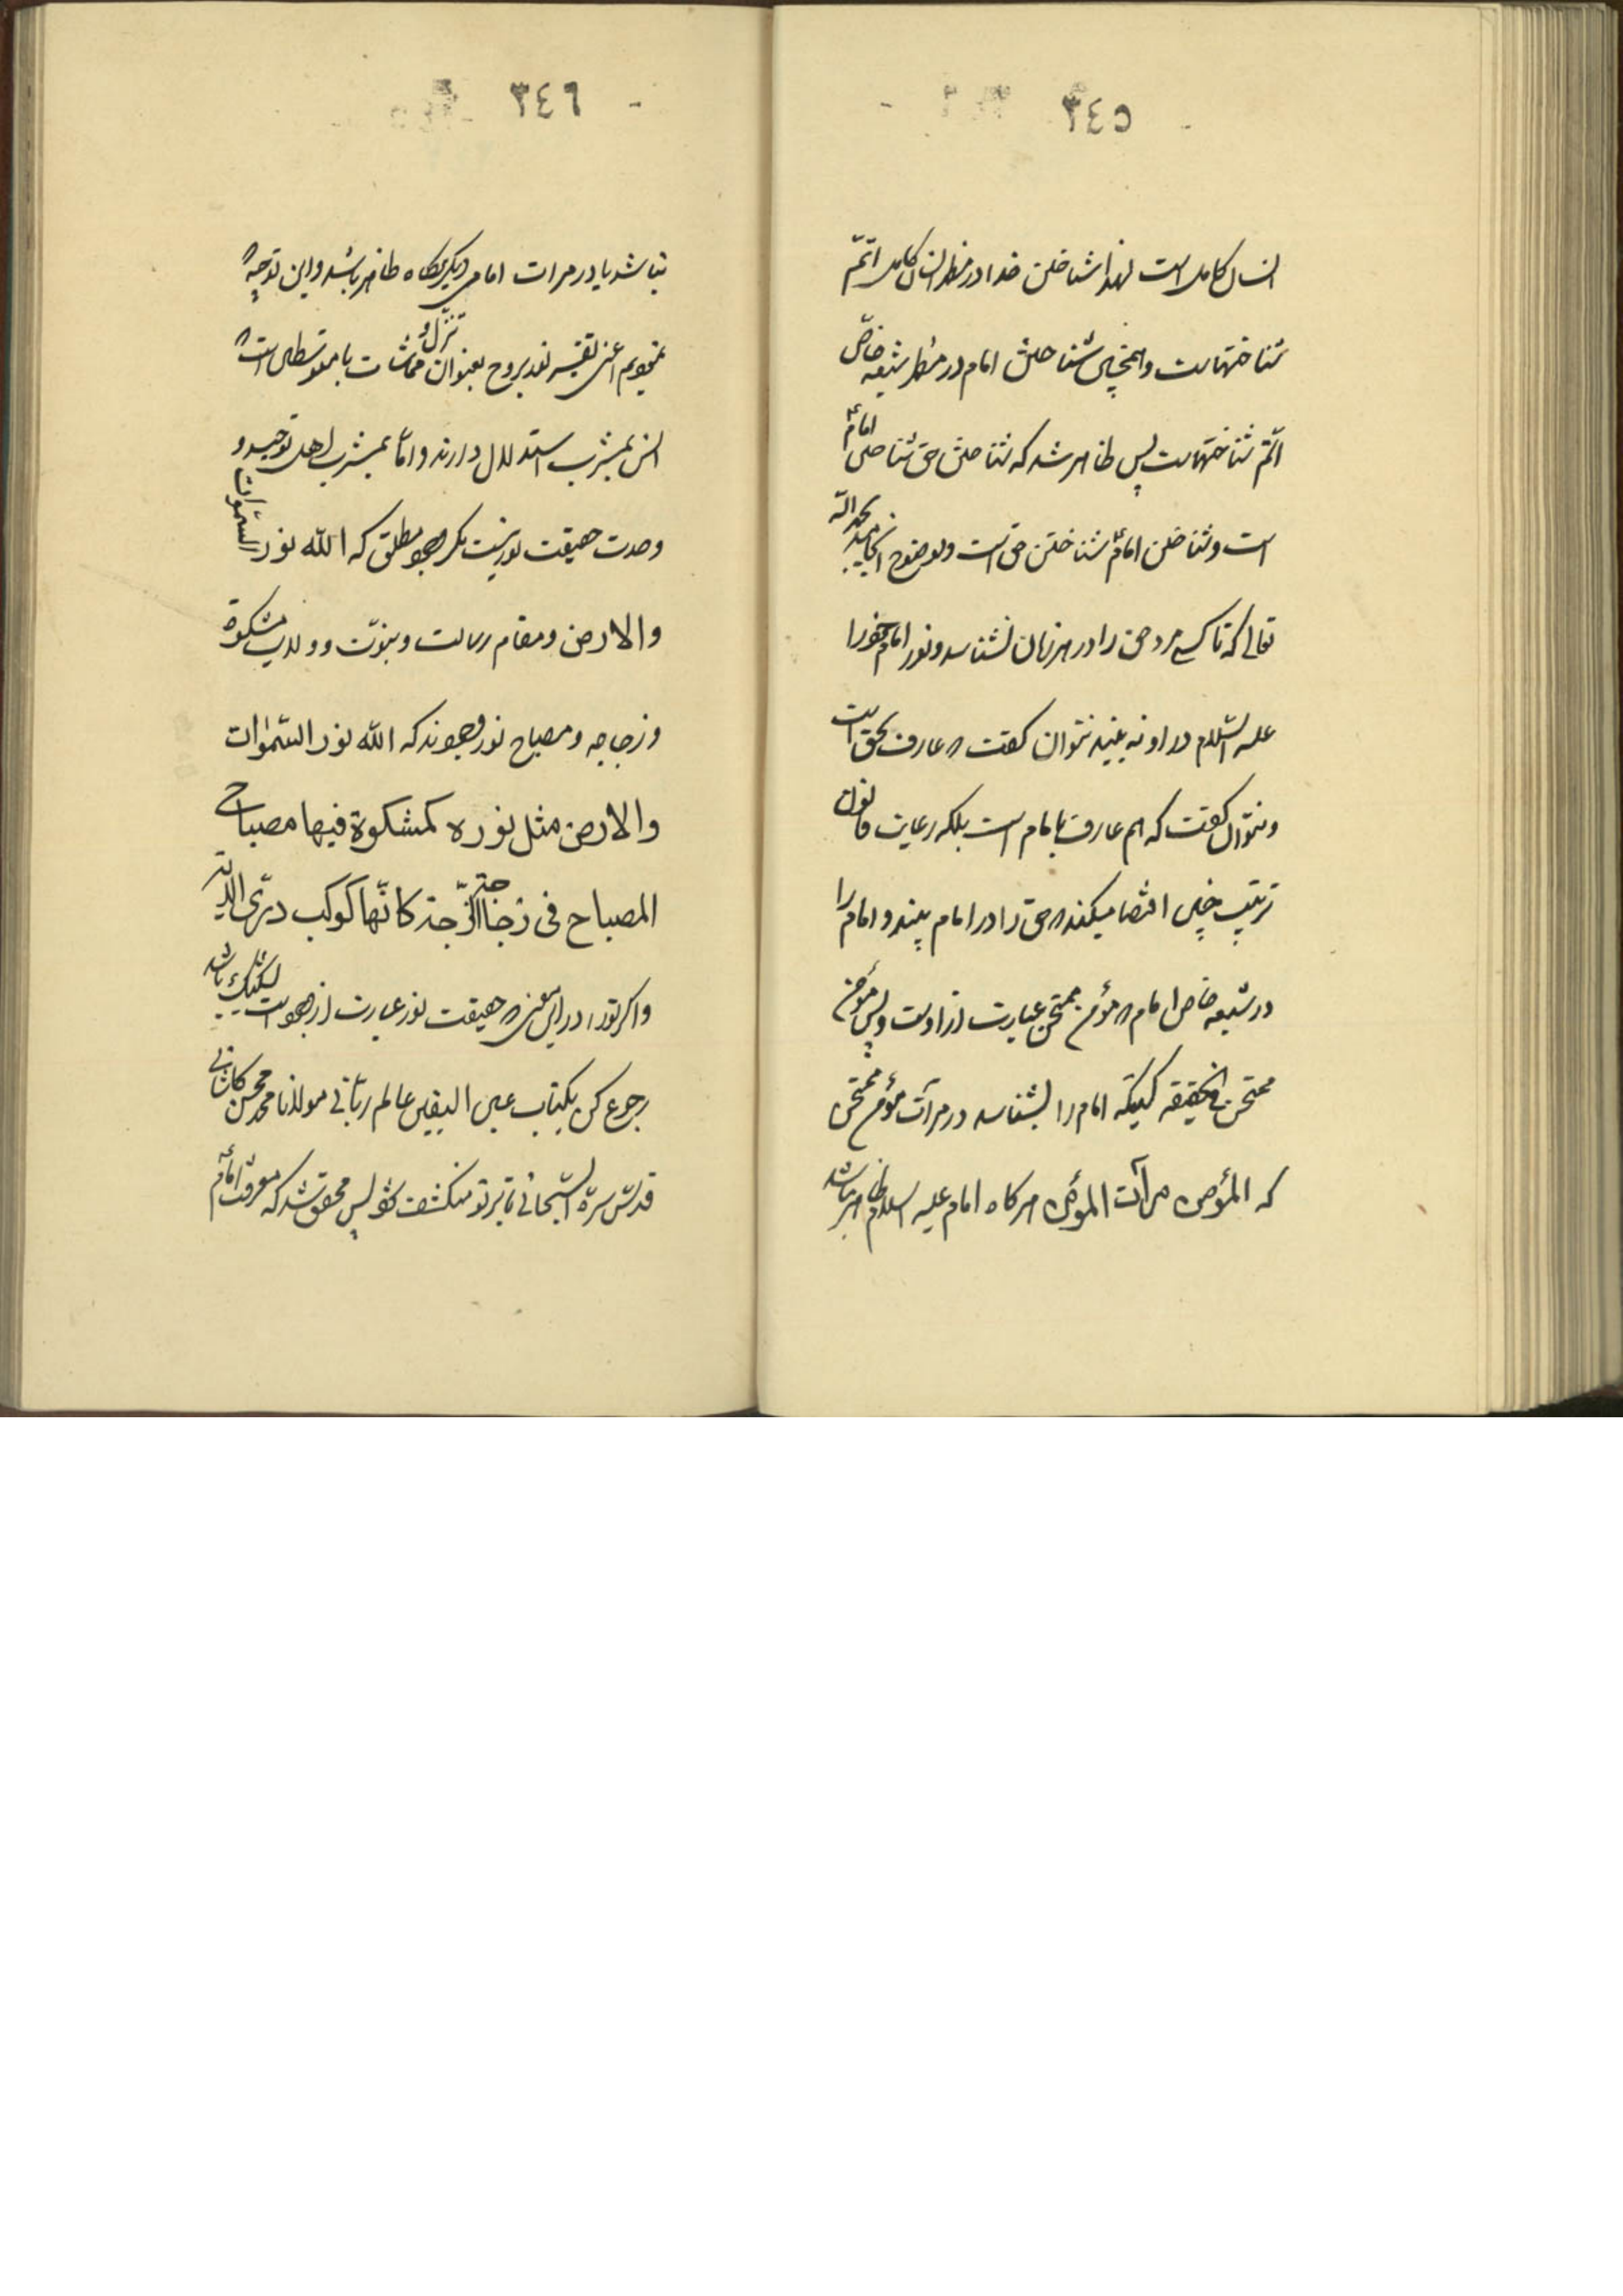 ٣٤٥
انسان کامل است لهذا شناختن خدا در مظهر انسان کامل اتمّ
شناختهاست و همچنین شناختن امام در مظهر شیعه خاصّ
اتمّ شناختهاست پس ظاهر شد که شناختن حق شناختن امامؑ
است و شناختن امامؑ شناختن حق است و بوضوح انجامید بحمد الله
تعالی که تا کسی مرد حق را در هر زمان نشناسد و نور امام خود را
علیه السّلام در او نه بیند نتوان گفت که عارف بحق است
و نتوان گفت که هم عارف بامام است بلکه رعایت قانون
ترتیب چنین اقتضا میکند که حق را در امام بیند و امام را
در شیعه خاص امام که مؤمن ممتحن عبارت از اوست و پس مؤمن
ممتحن فی الحقیقه کسیکه امام را بشناسد در مرآت مؤمن ممتحن
که المؤمن مرآت المؤمن هرگاه امام علیه السلام ظاهر باشد
٣٤٦
نباشد یا در مرات امامی دیگر هرگاه ظاهر باشد و این توجیه که
نمودیم اعنی تفسیر نور بروح بعنوان تنزّل و مماشات با متوسطان است که
انس بمشرب استدلال دارند و امّا بمشرب اهل توحید و
وحدت حقیقت نور نیست مگر وجود مطلق که الله نور السّموات
والارض و مقام رسالت و نبوّت و ولایت مشکوة
و زجاجه و مصباح نور وجودند که الله نور السّمٰوات
والارض مثل نوره کمشکوة فیها مصباح
المصباح فی زجاجة الزّجاجة کانّها کوکب درّیّ الایة
و اگر تو را در این معنی که حقیقت نور عبارت از وجود است شکّی باشد
رجوع کن بکتاب عین الیقین عالم ربّانی مولانا محمد محسن کاشانی
قدّس سرّه السّبحانی تا بر تو منکشف شود پس محقق شد که معرفت امامؑ